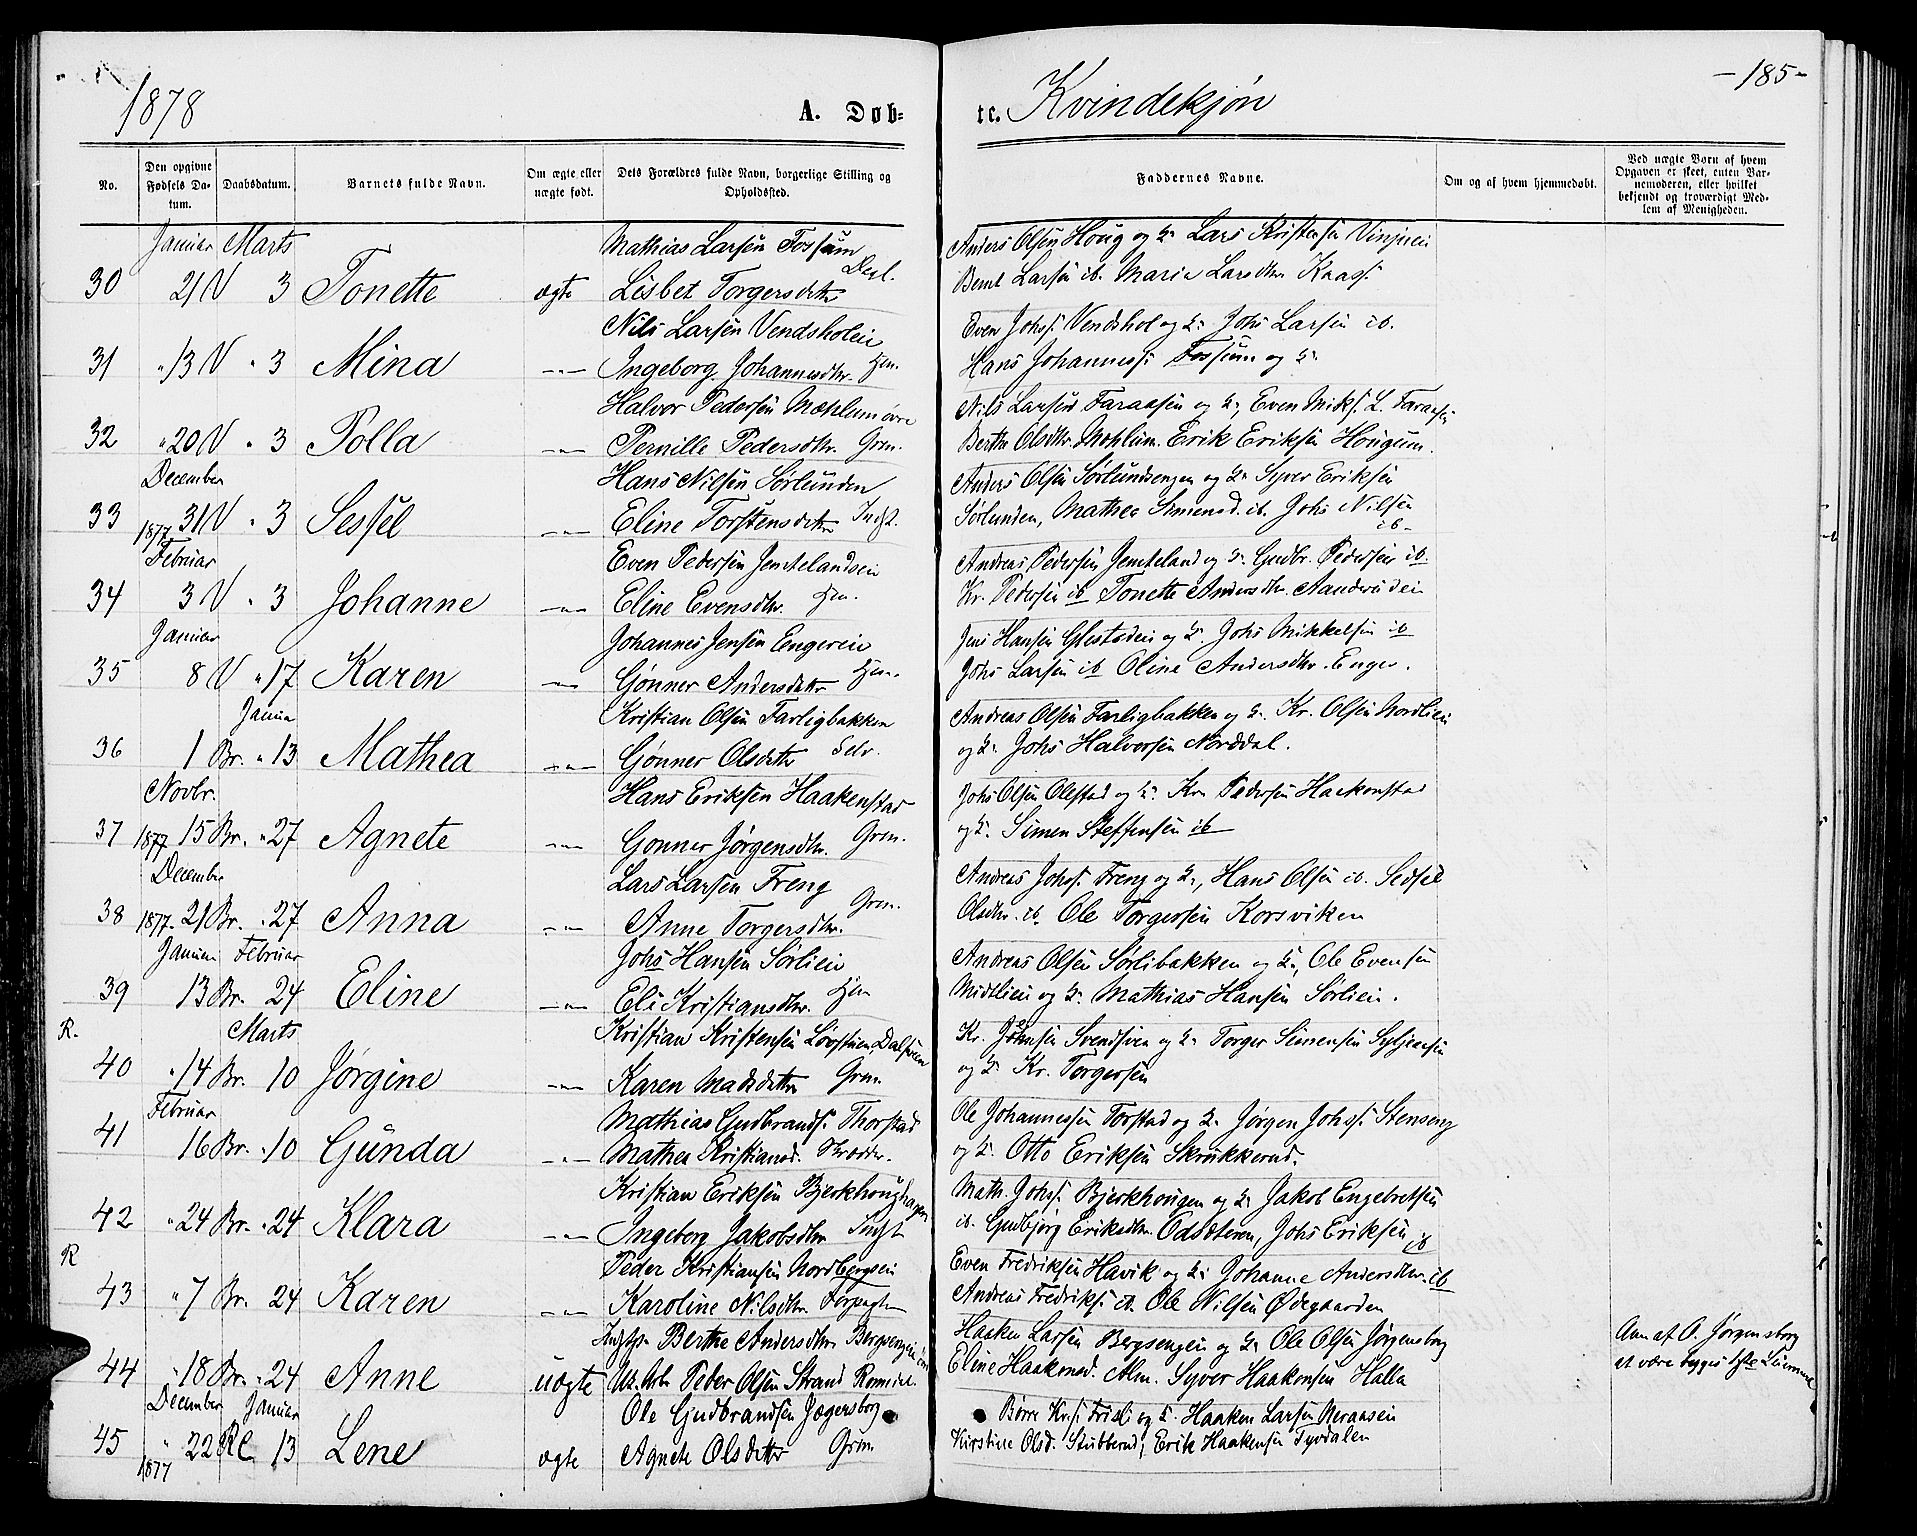 1878
A. Døb-
te. Kvindekjøn
-185-
No.
Den opgivne Fødsels Datum.
Daabsdatum.
Barnets fulde Navn.
Om ægte eller uægte født.
Dets Forældres fulde Navn, borgerlige Stilling og Opholdssted.
Faddernes Navne.
Om og af hvem hjemmedøbt.
Ved uægte Børn af hvem Opgaven er skeet, enten Barnemoderen, eller hvilket bekjendt og troværdigt Medlem af Menigheden.
Januar Marts Mathias Larsen Fossum Anders Olsen Houg og Lars Kristensen
30 21 V 3 Tonette ægte Lisbet Torgersdatter Bernt Larsen ib. Maria Larsdtr. Kaass.
Nils Larsen Vendsholen Even Johs. Vendshol og Johs Larsen ib.
31 " 13 V " 3 Mina -"- Ingeborg Johannesdtr. Hans Johanness. Fossum og
Halvor Pedersen Mæhlum øvre Nils Larsen Faraasen og Even
32 " 20 V " 3 Polla -"- Pernille Pedersdtr. Grm. Berthe Olsdtr. Mæhlum. Erik Eriksen Hougum.
December Hans Nilsen Sørlunden Anders Olsen Sørlundsengen og Syver Eriksen
33 1877 31 V " 3 Sessel -"- Eline Torstensdatter Indst. Sørlunden, Mathea Simensd. ib. Johs Nilsen ib.
Februar Even Pedersen Jemtelandseie Andreas Pedersen Jemteland og Gudbr. Pedersen ib.
34 3 V " 3 Johanne -"- Eline Evensdtr. Kr. Pedersen ib Tonette Andersdtr.
Januar Johannes Jensen Engereie Jens Hansen og Johs Mikkelsen ib
35 8 V " 17 Karen -"- Gønner Andersdatter Johs Larsen ib Oline Andersdtr. Enger.
Janua Kristian Olsen Farligbakken Andreas Olsen Farligbakken og Kr. Olsen Nordlien
36 1 Br. " 13 Mathea -"- Gønner Olsdatter Selv. og Johs Halvorsen Norddal.
Novbr. Hans Eriksen Haakenstad Johs Olsen Olestad og Kr. Pedersen Haakonstad
37 1877 15 Br. " 27 Agnete -"- Gonner Jørgensdtr. Grm. og Simen Steffensen ib
December Lars Larsen Freng Andreas Johs. Freng og Hans Olsen ib. Sedsel
38 1877. 21 Br. " 27 Anna -"- Anne Torgersdtr. Grm. Olsdtr. ib Ole Torgersen Korsviken
Januar Februar Johs Hansen Sørlien Andreas Olsen Sørlibakken og Ole Evensen
39 13 Br. 24 Eline -"- Eli Kristiansdtr. Midtlien og Mathias Hansen Sørlien.
R. Marts Kristian Kristensen Kr. Svendsven og Torger Simensen
40 " 14 Br. 10 Jørgine -"- Karen Madsdatter Grm. og Kr. Torgersen
Februar Mathias Gudbrands. Thorstad Ole Johannessen Torstad og Jørgen Johs. Stenseng
41 16 Br. " 10 Gunda -"- Mathea Kristiansd. og Otto Eriksen Skrukkerud.
Kristian Eriksen Bjerkhoughagen Math. Johs. Bjerkhougen og Jakob Engebretsen
42 " 24 Br. " 24 Klara -"- Ingeborg Jakobsdtr. Indst ib. Gudbjørg Eriksdtr. Johs Eriksen ib
R Peder Kristiansen Nordbergseie Even Fredriksen Havik og Johanne Andersdtr. ib
43 " 7 Br. 24 Karen -"- Karoline Nilsdtr. Andreas Fredriks. ib. Ole Nilsen Ødegaarden
Berthe Andersdtr. Bergsengeie Haaken Larsen Bergsengen og Ole Olsen Jørgensborg
44 " 18 Br. " 24 Anne uægte Peder Olsen Strand Eline Haakensd. Alm. Syver Haakonsen Halla
Anm. af O. Jørgensborg
at være begges 1ste
December Januar Ole Gudbrandsen Jægersborg og Haaken Larsen
45 " 1877 22 13 Lene ægte Agnete Olsdatter Grm. Kirstine Olsd. Stubberud, Erik Haakensen Tyvdalen